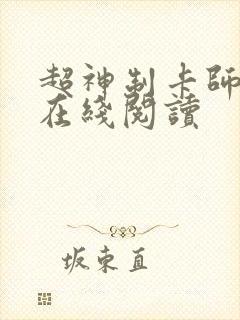 超神制卡師
在綫閱讀
坂東直